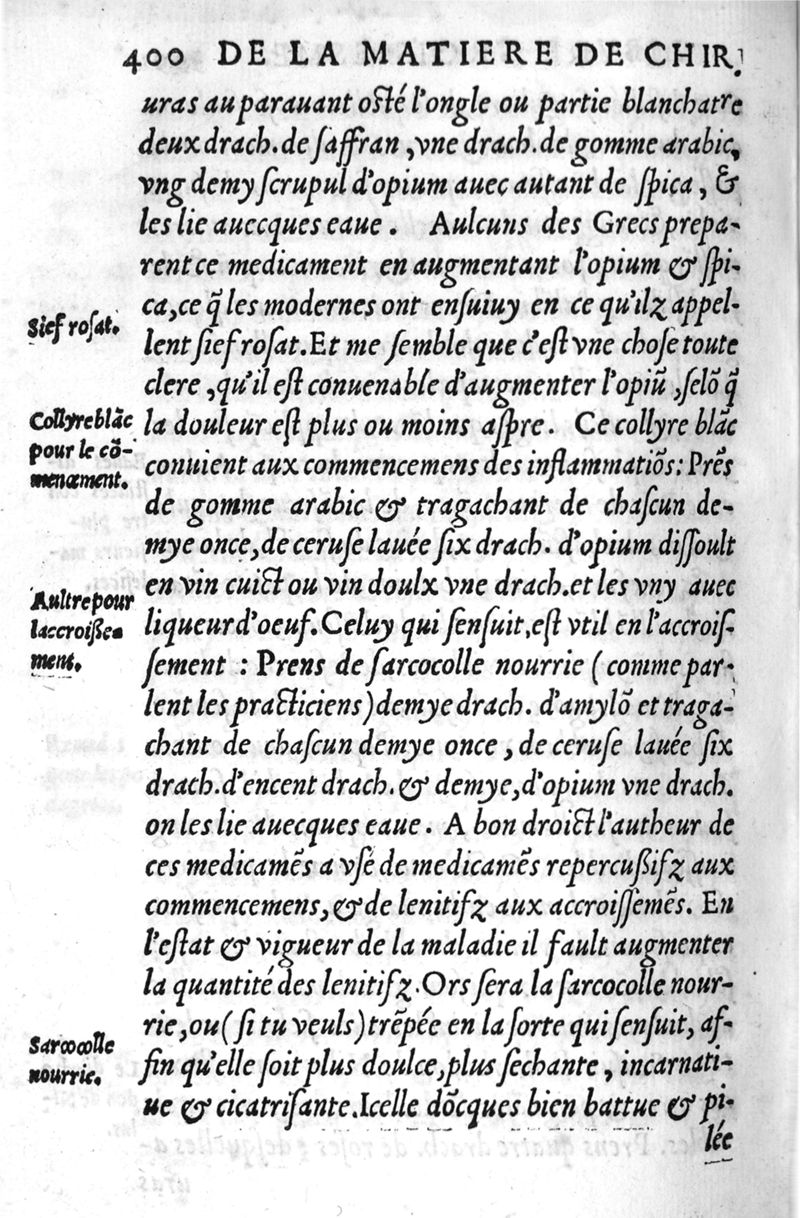 400 DE LA MATIERE DE CHIR.
uras auparauant osté l'ongle ou partie blanchatre
deux drach. de saffran ,vne drach. de gomme arabic,
vng demy scrupul d'opium auec autant de spica , &
les lie auecques eaue . Aulcuns des Grecs prepa-
rent ce medicament en augmentant l'opium & spi-
ca,ce q̃ les modernes ont ensuiuy en ce qu'ilz appel-
Sief rosat.
lent sief rosat.Et me semble que c'est vne chose toute
clere ,qu'il est conuenable d'augmenter l'opiũ ,selõ q̃
Collyre blãc
pour le cõ-
mencement.
la douleur est plus ou moins aspre . Ce collyre blãc
conuient aux commencemens des inflammatiõs: Prẽs
de gomme arabic & tragachant de chascun de-
mye once,de ceruse lauée six drach. d'opium dissoult
en vin cuict ou vin doulx vne drach.et les vny auec
Aultre pour
laccroisse-
ment.
liqueur d'oeuf.Celuy qui sensuit,est vtil en l'accrois-
sement : Prens de sarcocolle nourrie ( comme par-
lent les practiciens)demye drach. d'amylõ et traga-
chant de chascun demye once , de ceruse lauée six
drach.d'encent drach.& demye,d'opium vne drach.
on les lie auecques eaue . A bon droict l'autheur de
ces medicamẽs a vsé de medicamẽs repercussifz aux
commencemens,& de lenitifz aux accroissemẽs. En
l'estat & vigueur de la maladie il fault augmenter
la quantité des lenitifz.Ors sera la sarcocolle nour-
Sarcocolle
nourrie.
rie,ou( si tu veuls)trẽpée en la sorte qui sensuit, af-
fin qu'elle soit plus doulce,plus sechante , incarnati-
ue & cicatrisante.Icelle dõcques bien battue & pi-
lée